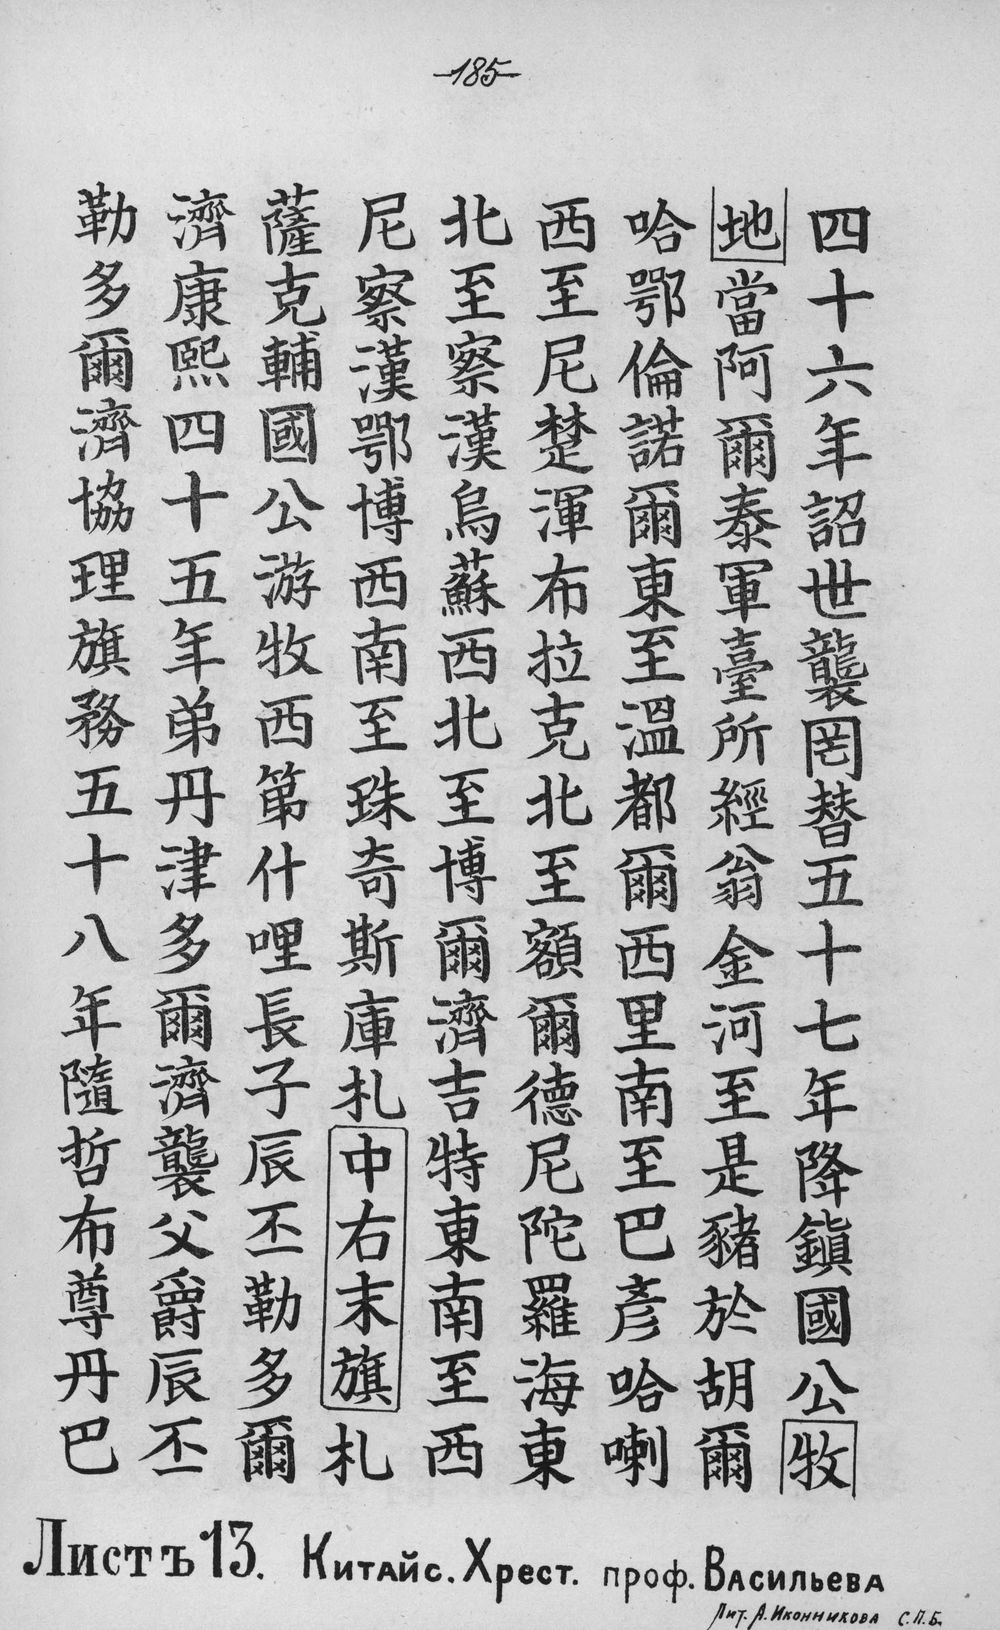 -185-
四十六年詔世襲罔替五十七年降鎮國公牧
地當阿爾泰軍臺所經翁金河至是豬於胡爾
哈鄂倫諾爾東至溫都爾西里南至巴彥哈喇
西至尼楚渾布拉克北至額爾德尼陀羅海東
北至察漢烏蘇西北至博爾濟吉特東南至西
尼察漢鄂博西南至珠奇斯庫札中右末旗札
薩克輔國公游牧西第什哩長子辰丕勒多爾
濟康熙四十五年弟丹津多爾濟襲父爵辰丕
勒多爾濟協理旗務五十八年隨哲布尊丹巴
Листъ 13. Китайс. Хрест. проф. Васильева
Лит. А. Иконникова С.П.Б.